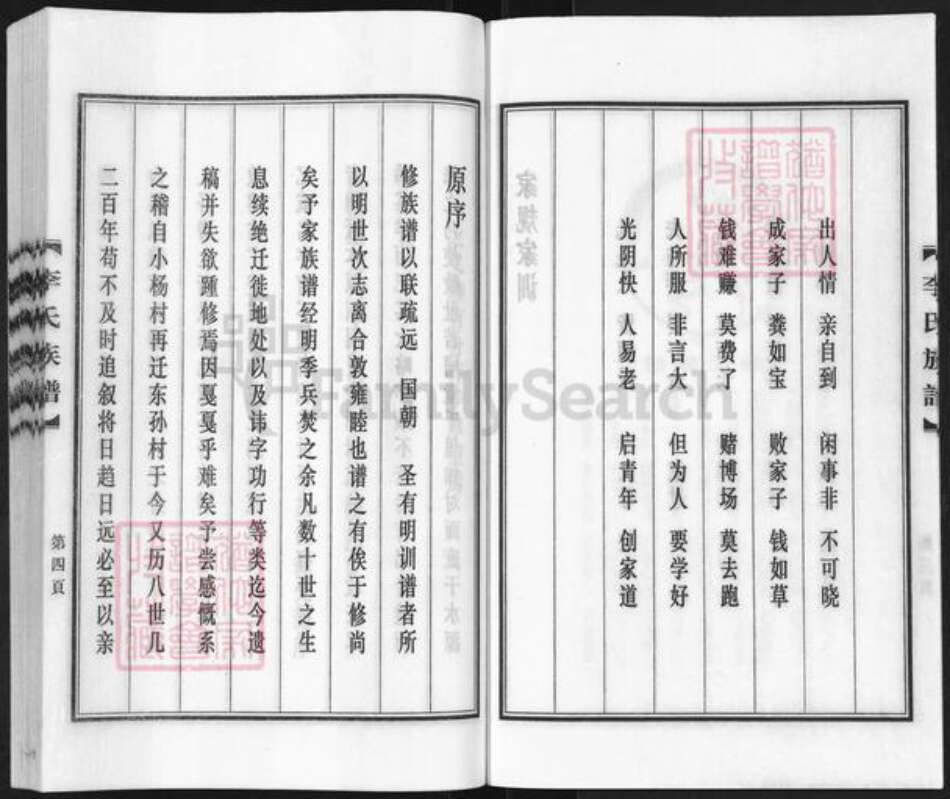 出人情 亲自到 闲事非 不可晓
成家子 粪如宝 败家子 钱如草
钱难赚 莫费了 赌博场 莫去跑
人所服 非言大 但为人 要学好
光阴快 人易老 启青年 创家道
【李氏族谱】
原序
修族谱以联疏远 国朝 圣有明训谱者所
以明世次志离合敦雍睦也谱之有俟于修尚
矣予家族谱经明季兵焚之余凡数十世之生
息续绝迁徙地处以及讳字功行等类迄今遗
稿并失欲踵修焉因戛戛乎难矣予尝感慨系
之稽自小杨村再迁东孙村于今又历八世几
二百年苟不及时追叙将日趋日远必至以亲
【李氏族谱】
第四頁
FamilySearch